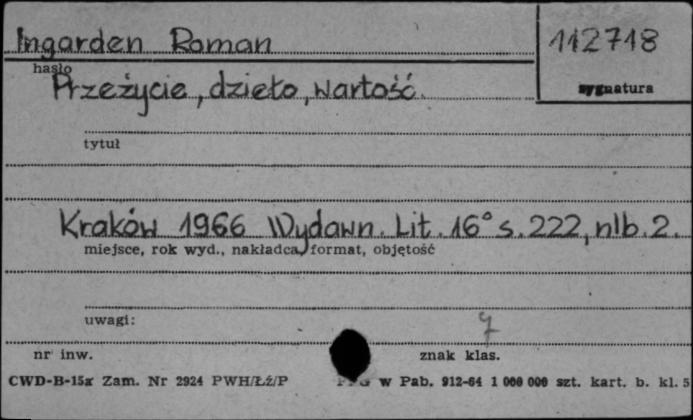 Ingarden Roman
112718
hasło
sygnatura
Przeżycie, dzieło, wartość.
tytuł
Kraków 1966 Wydawn. Lit. 16° s. 222, nlb. 2.
miejsce, rok wyd., nakładca, format, objętość
uwagi:
nr inw.
znak klas.
CWD-B-15a Zam. Nr 2924 PWH/Łź/P w Pab. 912-64 1 000 000 szt. kart. b. kl. 5